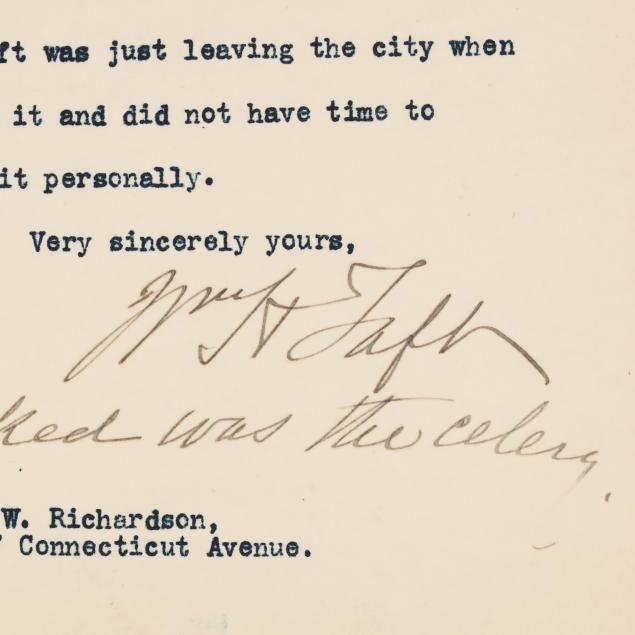 ft was just leaving the city when
it and did not have time to
it personally.
Very sincerely yours,
Wm H Taft
ked was the celery.
W. Richardson,
Connecticut Avenue.